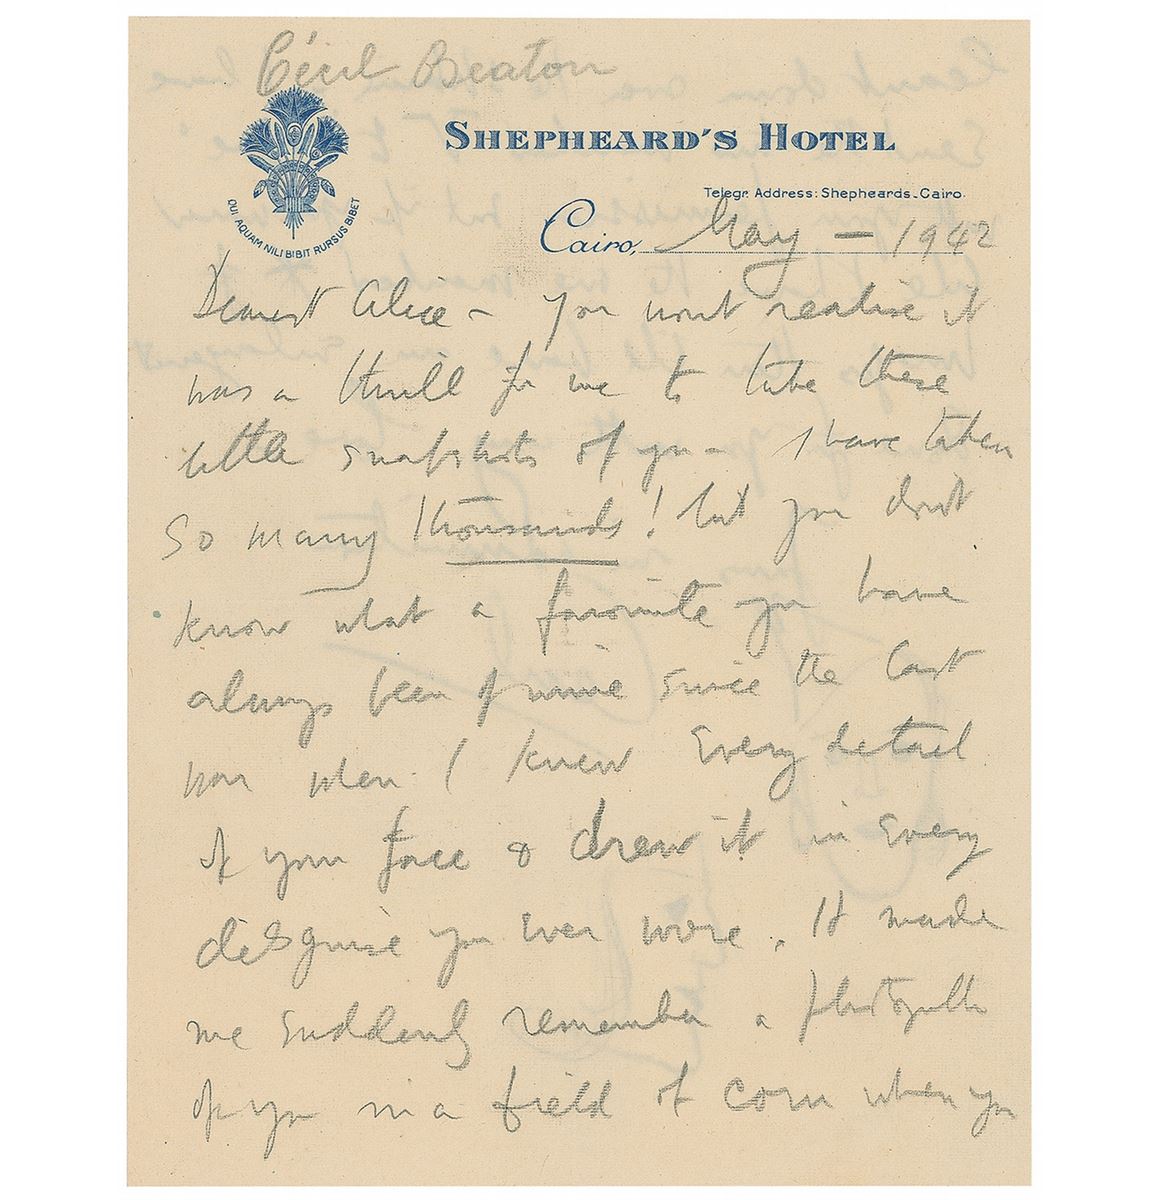 Cecil Beaton
SHEPHEARD'S HOTEL
Telegr. Address: Shepheards-Cairo.
QUI AQUAM NILI BIBIT RURSUS BIBET
Cairo, May — 1942
Dearest Alice – You wont realise it
was a thrill for me to take these
little snapshots of you – I have taken
so many thousands! but you dont
know what a favourite you have
always been of mine since the last
war when I knew every detail
of your face & drew it in every
disguise you ever wore. It made
me suddenly remember a photograph
of you in a field of corn when you